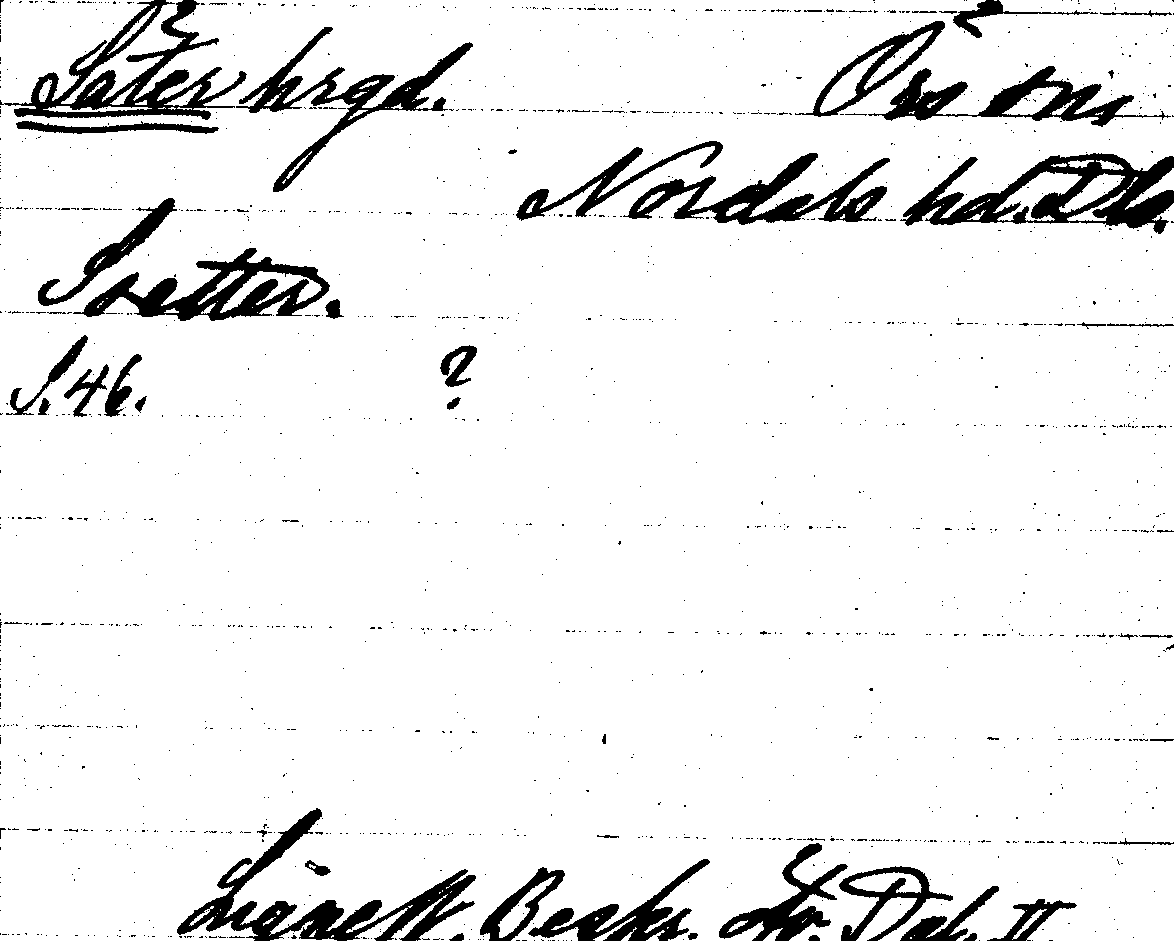 Säter hrgd. Örs sn,
Nordals hd. Dls.
Sætter.
S. 46. ?
Lignell. Beskr. öfv. Dal. II